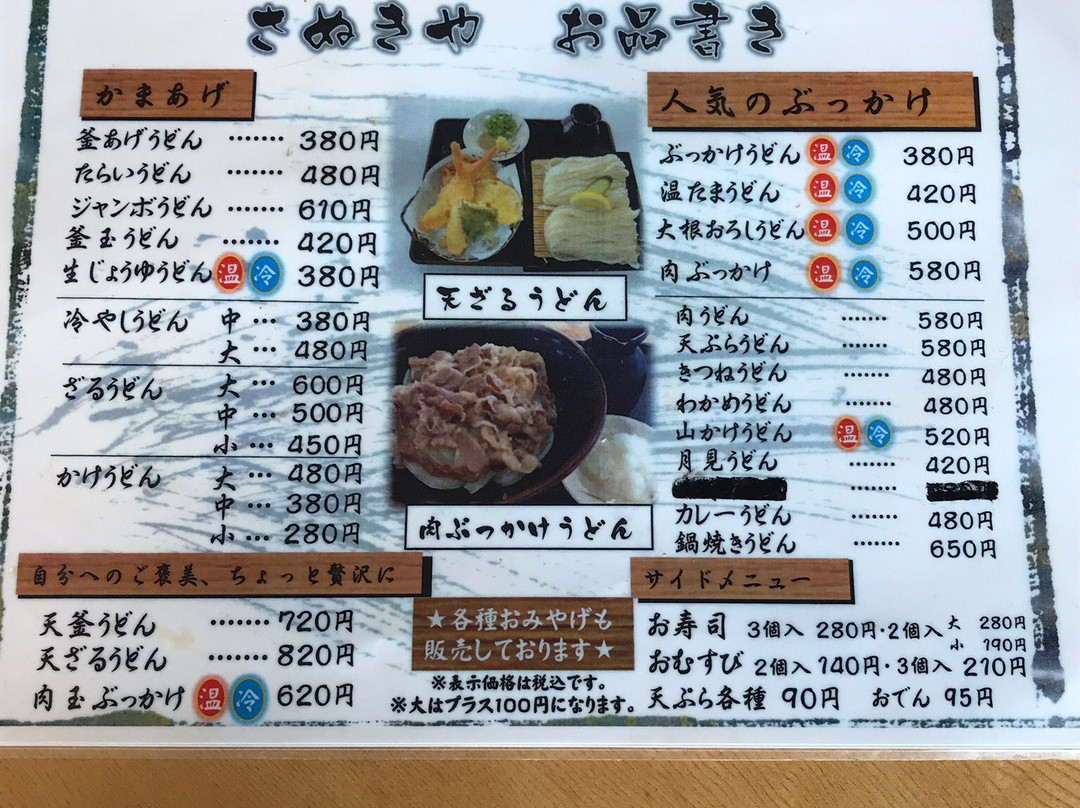 さぬきや お品書き
かまあげ
釜あげうどん ‥‥‥‥ 380円
たらいうどん ‥‥‥‥ 480円
ジャンボうどん ‥‥‥‥ 610円
釜玉うどん ‥‥‥‥ 420円
生じょうゆうどん 温 冷 380円
冷やしうどん 中 … 380円
大 … 480円
ざるうどん 大 … 600円
中 … 500円
小 … 450円
かけうどん 大 … 480円
中 … 380円
小 … 280円
自分へのご褒美、ちょっと贅沢に
天釜うどん ‥‥‥‥ 720円
天ざるうどん ‥‥‥‥ 820円
肉玉ぶっかけ 温 冷 620円
天ざるうどん
肉ぶっかけうどん
★各種おみやげも
販売しております★
※表示価格は税込です。
※大はプラス100円になります。
人気のぶっかけ
ぶっかけうどん 温 冷 380円
温たまうどん 温 冷 420円
大根おろしうどん 温 冷 500円
肉ぶっかけ 温 冷 580円
肉うどん ‥‥‥‥ 580円
天ぷらうどん ‥‥‥‥ 580円
きつねうどん ‥‥‥‥ 480円
わかめうどん ‥‥‥‥ 480円
山かけうどん 温 冷 520円
月見うどん ‥‥‥‥ 420円
カレーうどん ‥‥‥‥ 480円
鍋焼きうどん ‥‥‥‥ 650円
サイドメニュー
お寿司 3個入 280円・2個入 大 280円
小 190円
おむすび 2個入 140円・3個入 210円
天ぷら各種 90円 おでん 95円